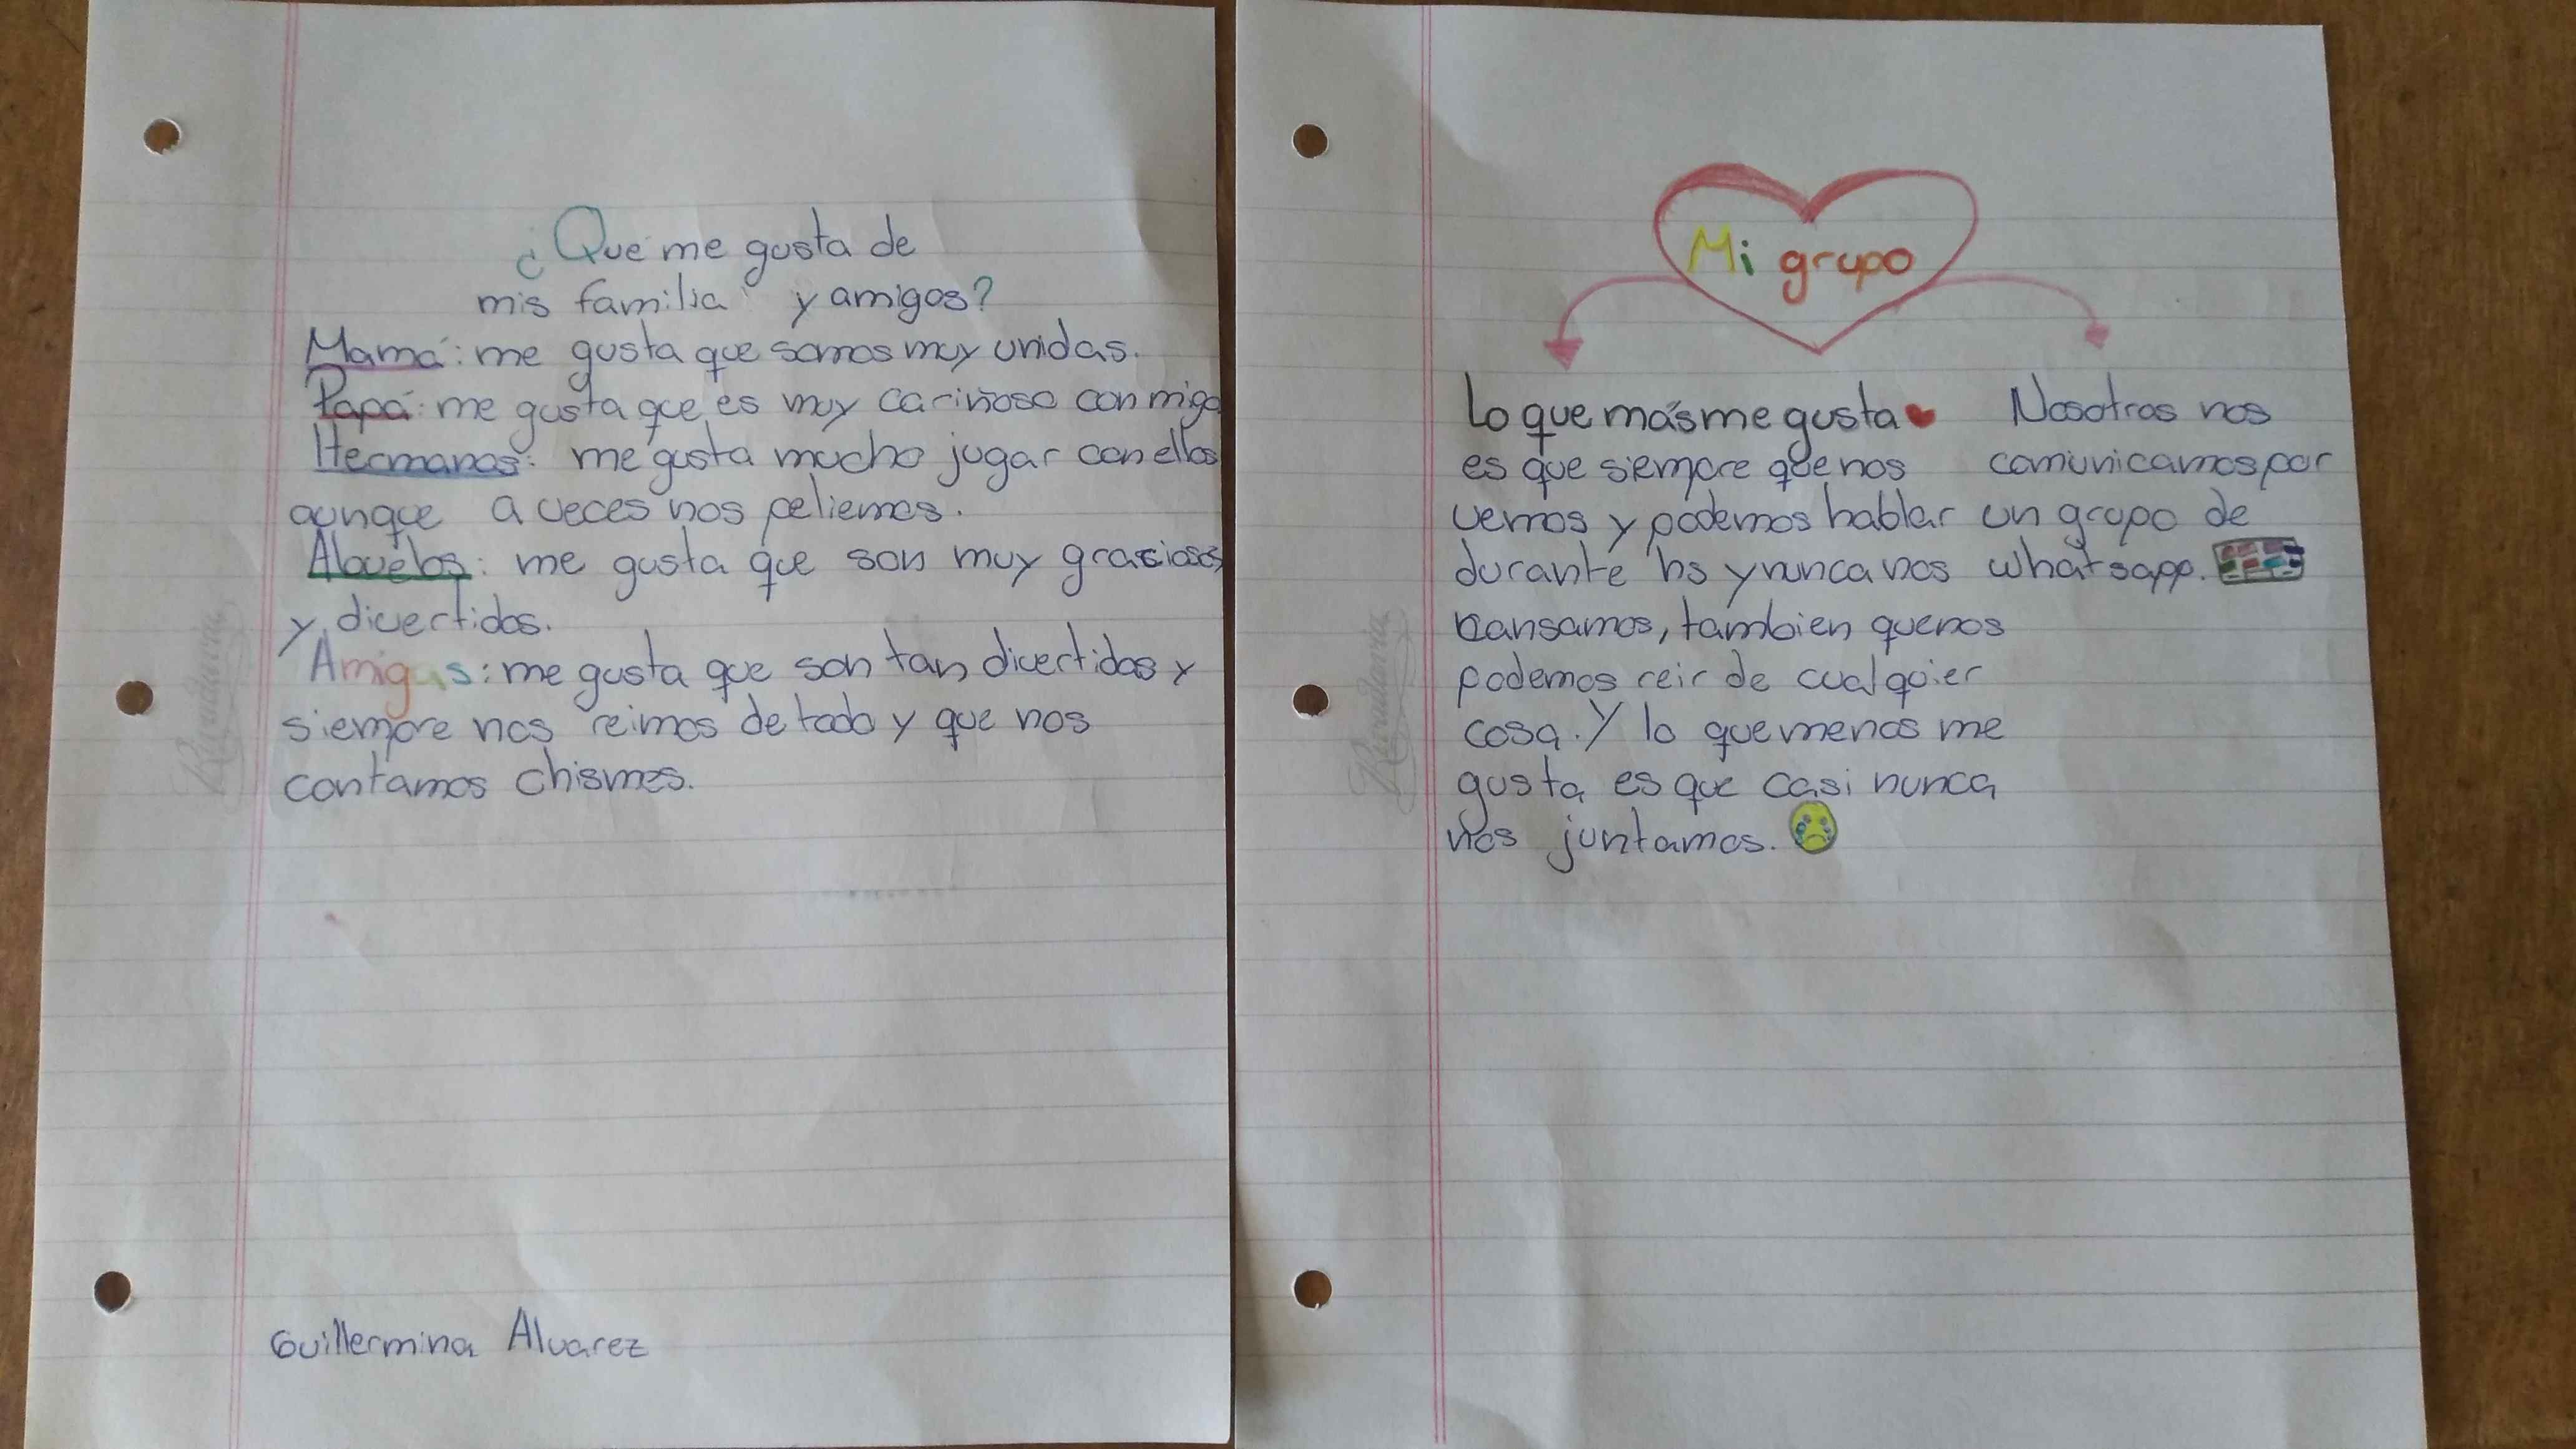 ¿Que me gusta de
mis familia y amigos?
Mamá: me gusta que somos muy unidas.
Papá: me gusta que es muy cariñoso conmigo
Hermanos: me gusta mucho jugar con ellos
aunque a veces nos peliemos.
Abuelos: me gusta que son muy graciosos
y divertidos.
Amigas: me gusta que son tan divertidas y
siempre nos reimos de todo y que nos
contamos chismes.
Guillermina Alvarez
Rivadavia
Mi grupo
Lo que más me gusta
es que siempre que nos
vemos y podemos hablar
durante hs y nunca nos
cansamos, tambien que nos
podemos reir de cualquier
cosa. Y lo que menos me
gusta es que casi nunca
nos juntamos.
Nosotros nos
comunicamos por
un grupo de
whatsapp.
Rivadavia